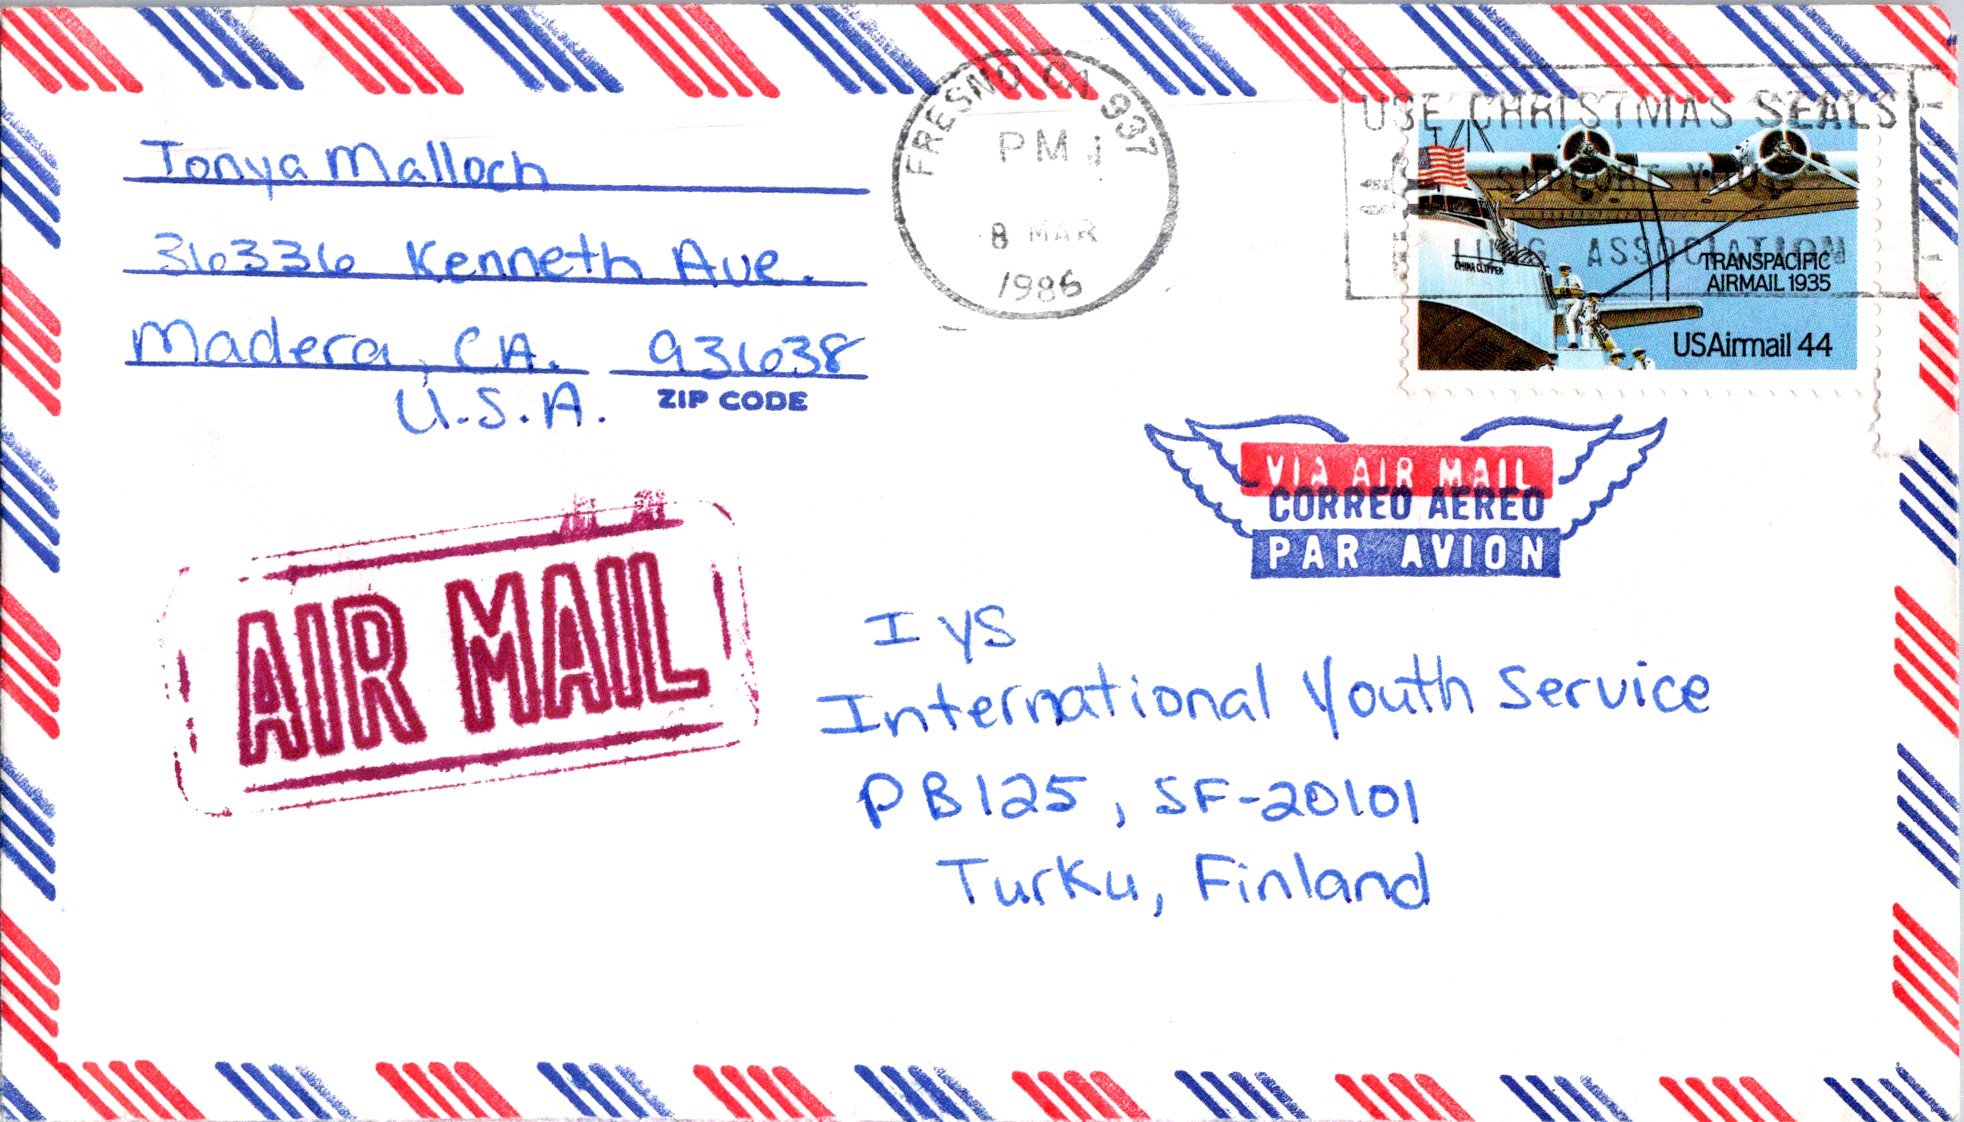 Tonya Malloch
36336 Kenneth Ave.
Madera, CA. 93638
U.S.A. ZIP CODE
FRESNO CA 937
PM
8 MAR
1986
USE CHRISTMAS SEALS
SUPPORT YOUR
LUNG ASSOCIATION
CHINA CLIPPER
TRANSPACIFIC
AIRMAIL 1935
USAirmail 44
VIA AIR MAIL
CORREO AEREO
PAR AVION
AIR MAIL
IYS
International Youth Service
PB 125, SF-20101
Turku, Finland